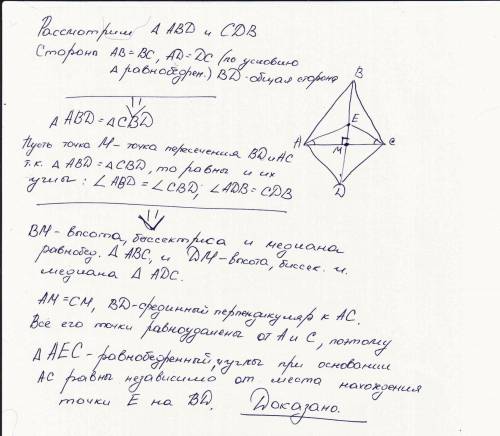 Рассмотрим Δ ABD и CDB
Стороны AB=BC, AD=DC (по условию
Δ равнобедрен.) BD-общая сторона
Δ ABD = Δ CBD
Пусть точка M-точка пересечения BD и AC
т.к. Δ ABD = Δ CBD, то равны и их
углы: ∠ABD = ∠CBD; ∠ADB = CDB
BM-высота, биссектриса и медиана
равнобед. Δ ABC, и DM-высота, биссек. и
медиана Δ ADC.
AM=CM, BD-срединный перпендикуляр к AC.
Все его точки равноудалены от A и C, поэтому
Δ AEC - равнобедренный, углы при основании
AC равны независимо от места нахождения
точки E на BD. Доказано.
B
E
A
C
M
D